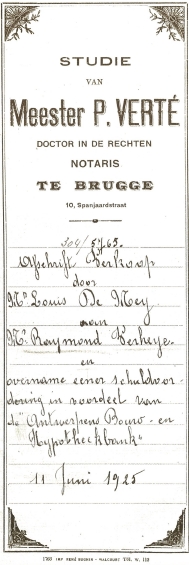 STUDIE
VAN
Meester P. VERTÉ
DOCTOR IN DE RECHTEN
NOTARIS
TE BRUGGE
10, Spanjaardstraat
304/5765.
Afschrift Verkoop
door
Mr Louis De Mey
aan
Mr Raymond Verheye.
en
overname eener schuldvor
dering in voordeel van
de "Antwerpen Bouw- en
Hypotheekbank"
11 Juni 1925